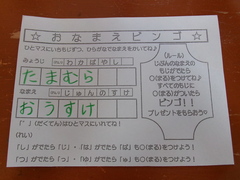 ☆ おなまえビンゴ ☆
ひとマスにいちもじずつ、ひらがなでなまえをかいてね♪
みょうじ
(れい) わ か ば や し
たまむら
なまえ
(れい) じ ゅ ん の す け
おうすけ
「゛」「゜」などはひとマスにいれてね!
(ルール)
じぶんのなまえの
もじがでたら
○(まる)をつけて♪
すべてのもじに
○(まる)がついたら
ビンゴ!!
プレゼントをもらおう♡
(れい)
「し」がでたら「じ」・「は」がでたら「ば」も○(まる)をつけよう!
「つ」がでたら「っ」・「ゆ」がでたら「ゅ」も○(まる)をつけよう!